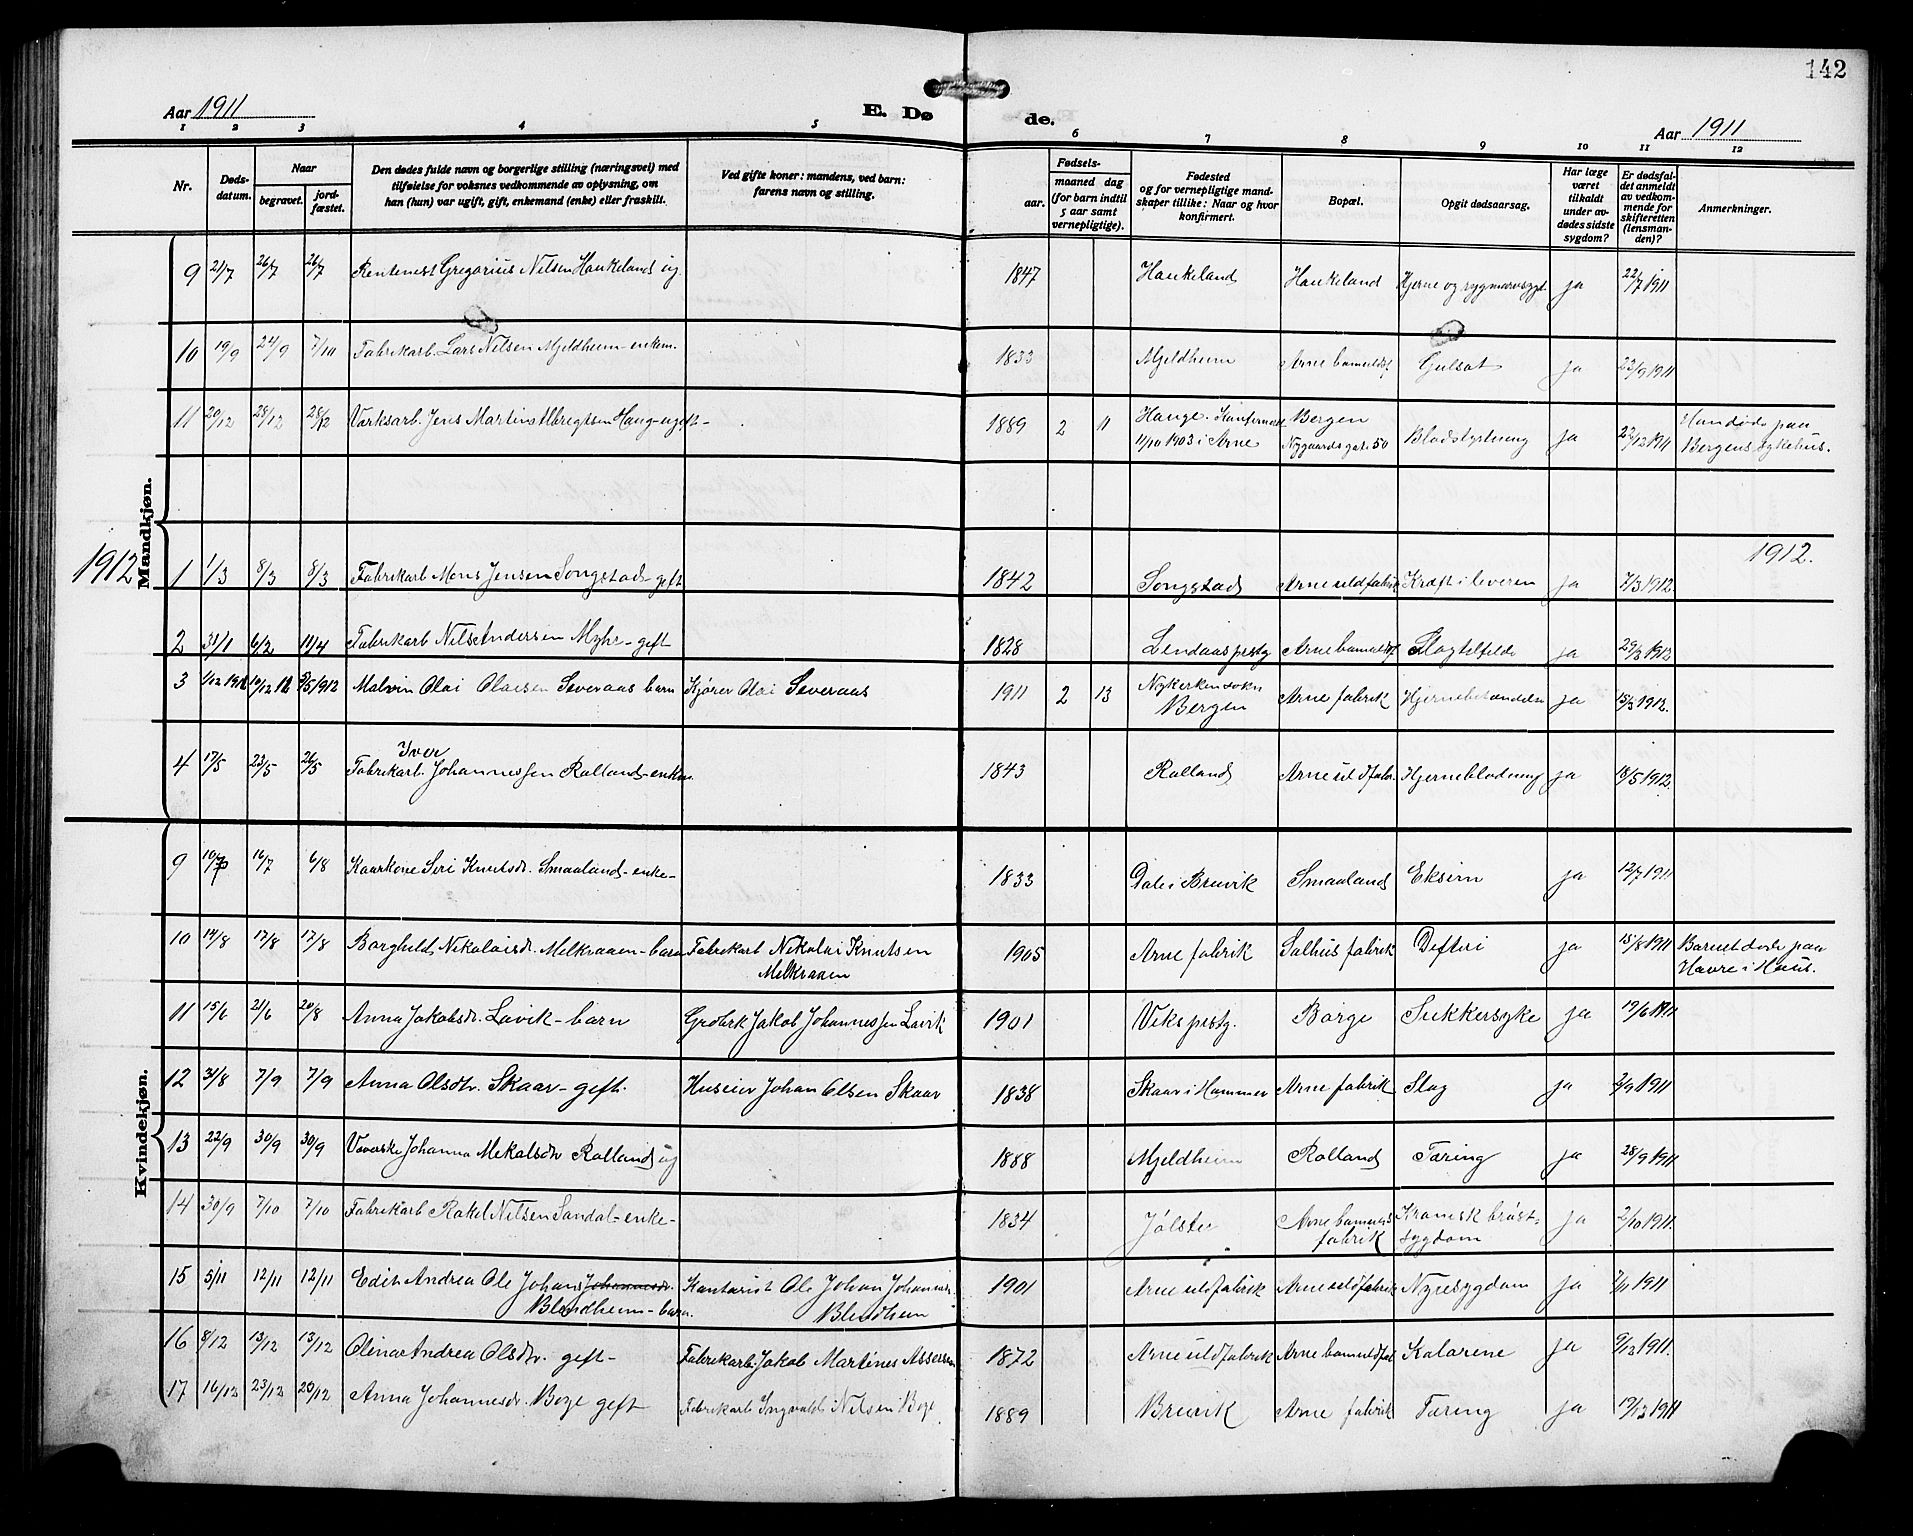 142
Aar 1911
E. Dø de.
Aar 1911
1 2 3 4 5 6 7 8 9 10 11 12
Nr.
Døds-
datum.
Naar
begravet.
jord-
fæstet.
Den dødes fulde navn og borgerlige stilling (næringsvei) med
tilføielse for voksnes vedkommende av oplysning, om
han (hun) var ugift, gift, enkemand (enke) eller fraskilt.
Ved gifte koner: mandens, ved barn:
farens navn og stilling.
Fødsels-
aar.
maaned dag
(for barn indtil
5 aar samt
vernepligtige).
Fødested
og for vernepligtige mand-
skaper tillike: Naar og hvor
konfirmert.
Bopæl.
Opgit dødsaarsag.
Har læge
været
tilkaldt
under av-
dødes sidste
sygdom?
Er dødsfal-
det anmeldt
av vedkom-
mende for
skifteretten
(lensman-
den)?
Anmerkninger.
Mandkjøn.
9 21/7 26/7 26/7 Rentenest Gregorius Nilsen Haukeland ug 1847 Haukeland Haukeland Hjerne og rygmarvsygd. ja 22/7 1911
10 19/9 24/9 7/10 Fabrikarb. Lars Nilsen Mjeldheim-enkem. 1833 Mjeldheim Arne bomuldsf Gulsot ja 23/9 1911
11 20/12 28/12 28/12 Værksarb. Jens Martin Albregtsen Haug-ugift- 1889 2 11 Hauge. Konfirmert Bergen Blodstyrtning ja 22/12 1911 Han døde paa
11/10 1903 i Arne Nygaardsgate 50 Bergens sykehus.
1912
1912.
1 1/3 8/3 8/3 Fabrikarb Mons Jensen Songstad-gift 1842 Songstad Arne uldfabrik Kræft i leveren ja 7/3 1912
2 31/1 6/2 11/4 Fabrikarb Nils Andersen Myhr-gift 1828 Lindaas prstg Arne bomuldsf Slagtilfælde ja 29/3 1912
3 1/12 1911 10/12 11 9/5 1912 Malvin Olai Olaisen Severaas barn Kjører Olai Severaas 1911 2 13 Nykerkens sokn
Bergen Arne fabrik Hjernebetændelse ja 18/3 1912.
4 17/5 23/5 26/5 Fabrikarb. Iver Johannessen Rolland-enkem 1843 Rolland Arne uldfabr. Hjerneblødning ja 18/5 1912.
Kvindekjøn.
9 10/7 16/7 6/8 Kaarkone Siri Knutsdr. Smaaland-enke- 1833 Dale i Bruvik Smaaland Eksem ja 12/7 1911
10 14/8 17/8 17/8 Borghild Nikolaisdr. Melkraaen-barn Fabrikarb Nikolai Knutsen
Melkraaen 1905 Arne fabrik Salhus fabrik Difteri ja 15/8 1911 Barnet døde paa
Havre i Haus.
11 15/6 21/6 20/8 Anna Jakobsdr. Lavik-barn Grobrk Jakob Johannessen Lavik 1901 Viks prstg. Borge Sukkersyke ja 19/6 1911
12 31/8 7/9 7/9 Anna Olsdtr. Skaar-gift. Huseier Johan Olsen Skaar 1838 Skaar i Hammer Arne fabrik Slag ja 2/9 1911
13 22/9 30/9 30/9 Væverske Johanna Mikalsdtr Rolland ug 1888 Mjeldheim Rolland Tæring ja 28/9 1911
14 30/9 7/10 7/10 Fabrikarb Rakel Nilsen Sandal-enke- 1834 Jølster Arne bomulds
fabrik Kronisk brøst-
sygdom ja 2/10 1911.
15 5/11 12/11 12/11 Edit Andrea Ole Johans Johannesdr.
Blindheim-barn. Kontorist Ole Johan Johannes.
Blindheim 1901 Arne uldfabrik Arne uldfabrik Nyresygdom ja 7/11 1911
16 8/12 13/12 13/12 Olina Andrea Olsdtr. gift- Fabrikarb. Jakob Martines Assersen 1872 Arne uldfabrik Arne bomuldfab Kolorene ja 9/12 1911.
17 16/12 23/12 23/12 Anna Johannesdr. Boge gift Fabrikarb Ingvald Nilsen Boge 1889 Bruvik Arne fabrik Tæring ja 19/12 1911